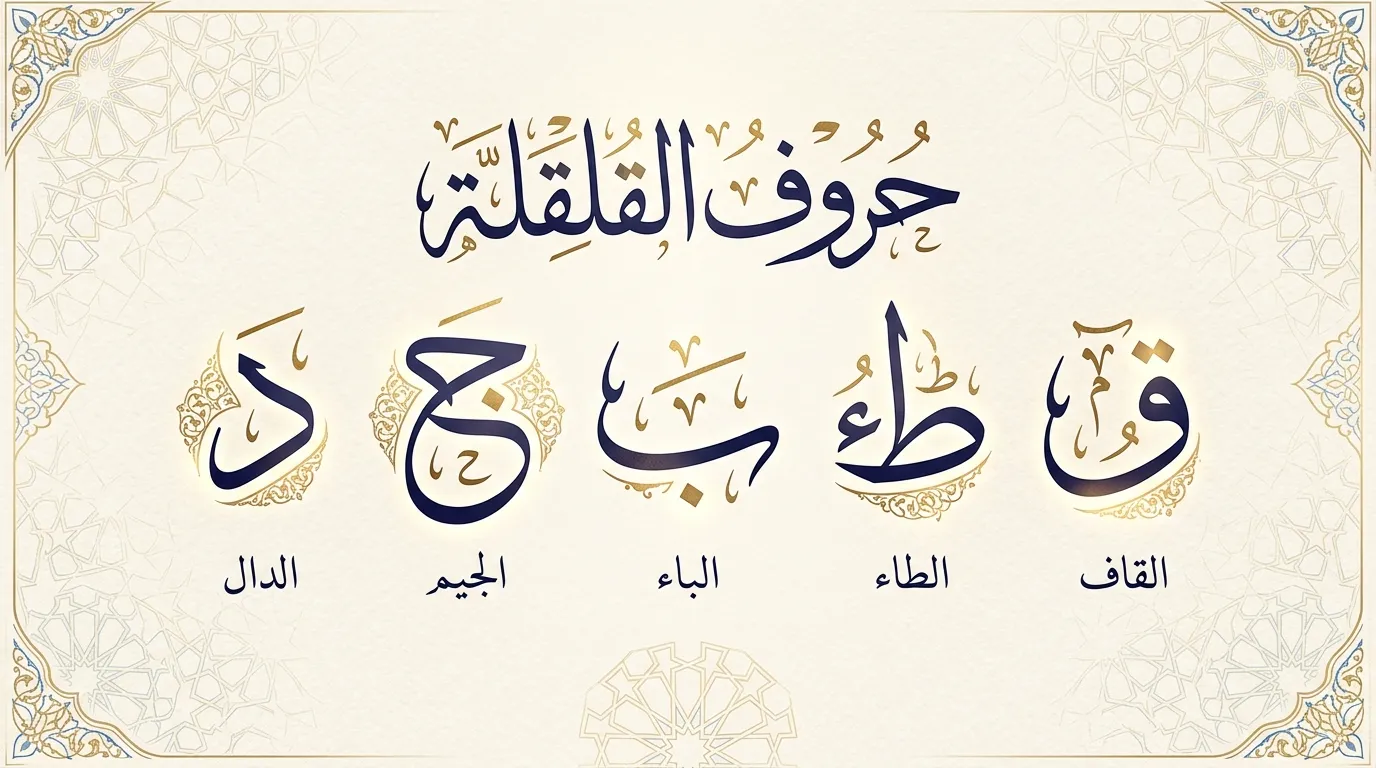 حُرُوفُ القُلقَلَّة
قُ طُء بَ جَ دَ
القاف الطاء الباء الجيم الدال